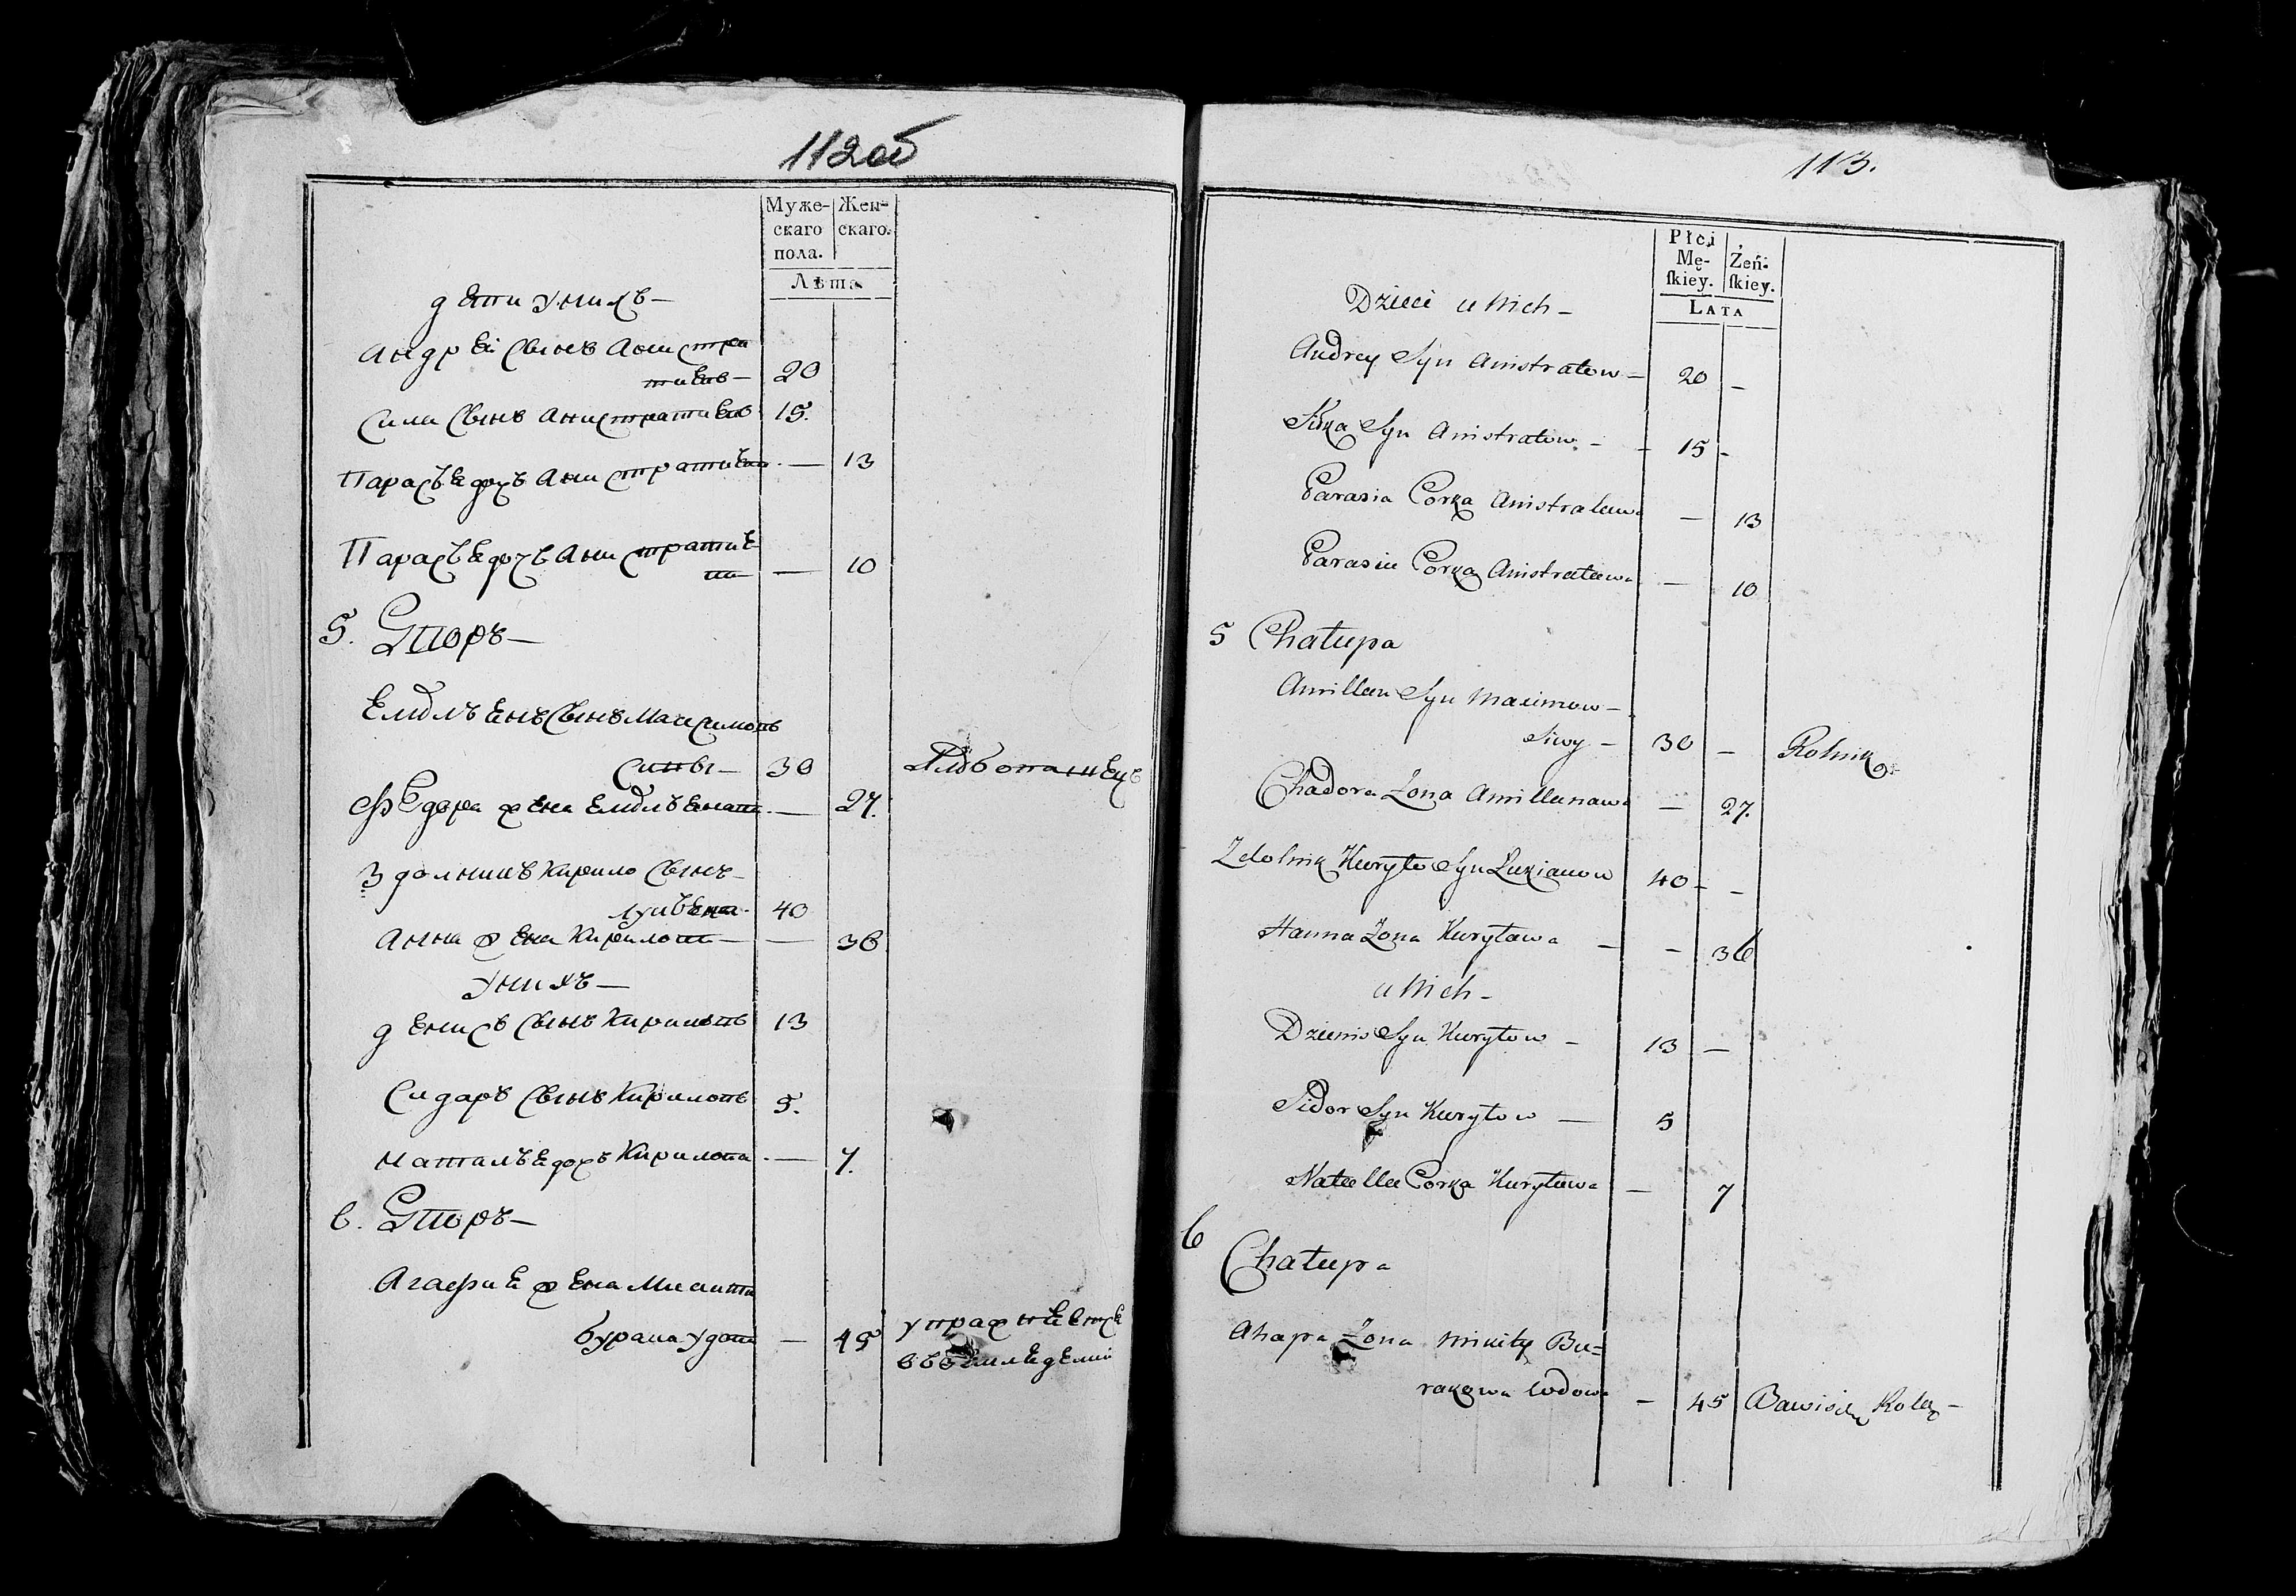 112об
Муже- Жен-
скаго скаго.
пола.
Лѣта
дети унихъ —
Андрей сынъ Анистра
тиевъ — 20
Сила сынъ Анистратиевъ 15.
Парасъя дочъ Анистратиева — 13
Парасъя дочъ Анистратиева — 10
5. Дворъ —
Емельенъ сынъ Максимовъ
Сивы — 30 Хлѣбопашецъ
Федора жена Емельенова — 27.
Здолникъ Кирило сынъ —
40
Анна жена Кирилова — — 36
унихъ —
Денисъ сынъ Кириловъ 13
Сидаръ сынъ Кириловъ 5.
Наталъя дочъ Кирилова — 7.
6. Дворъ —
Агафия жена Микиты
Бурака удова — 45 упражняется
въ земледелии
113.
Płci
Mę- Żeń-
ſkiey. ſkiey.
LATA
Dzieci u Nich —
Andrey Syn Anistratow — 20 —
Siła Syn Anistratow — — 15 —
Parasia Corka Anistratawa — 13
Parasia Corka Anistratawa — 10
5 Chałupa
Amillan Syn Maximow —
Siwy — 30 — Rolnik
Chadora Żona Amillanawa — 27.
Zdolnik Kuryło Syn Łukianow 40 — —
Hanna Żona Kuryława — — 36
u Nich —
Dzienis Syn Kuryłow — 13 —
Sidor Syn Kuryłow — 5
Natalla Corka Kuryława — 7
6
Chałupa
Ahapa Żona Mikity Bu=
rakowa Wdowa — 45 Bawi się Rolą —